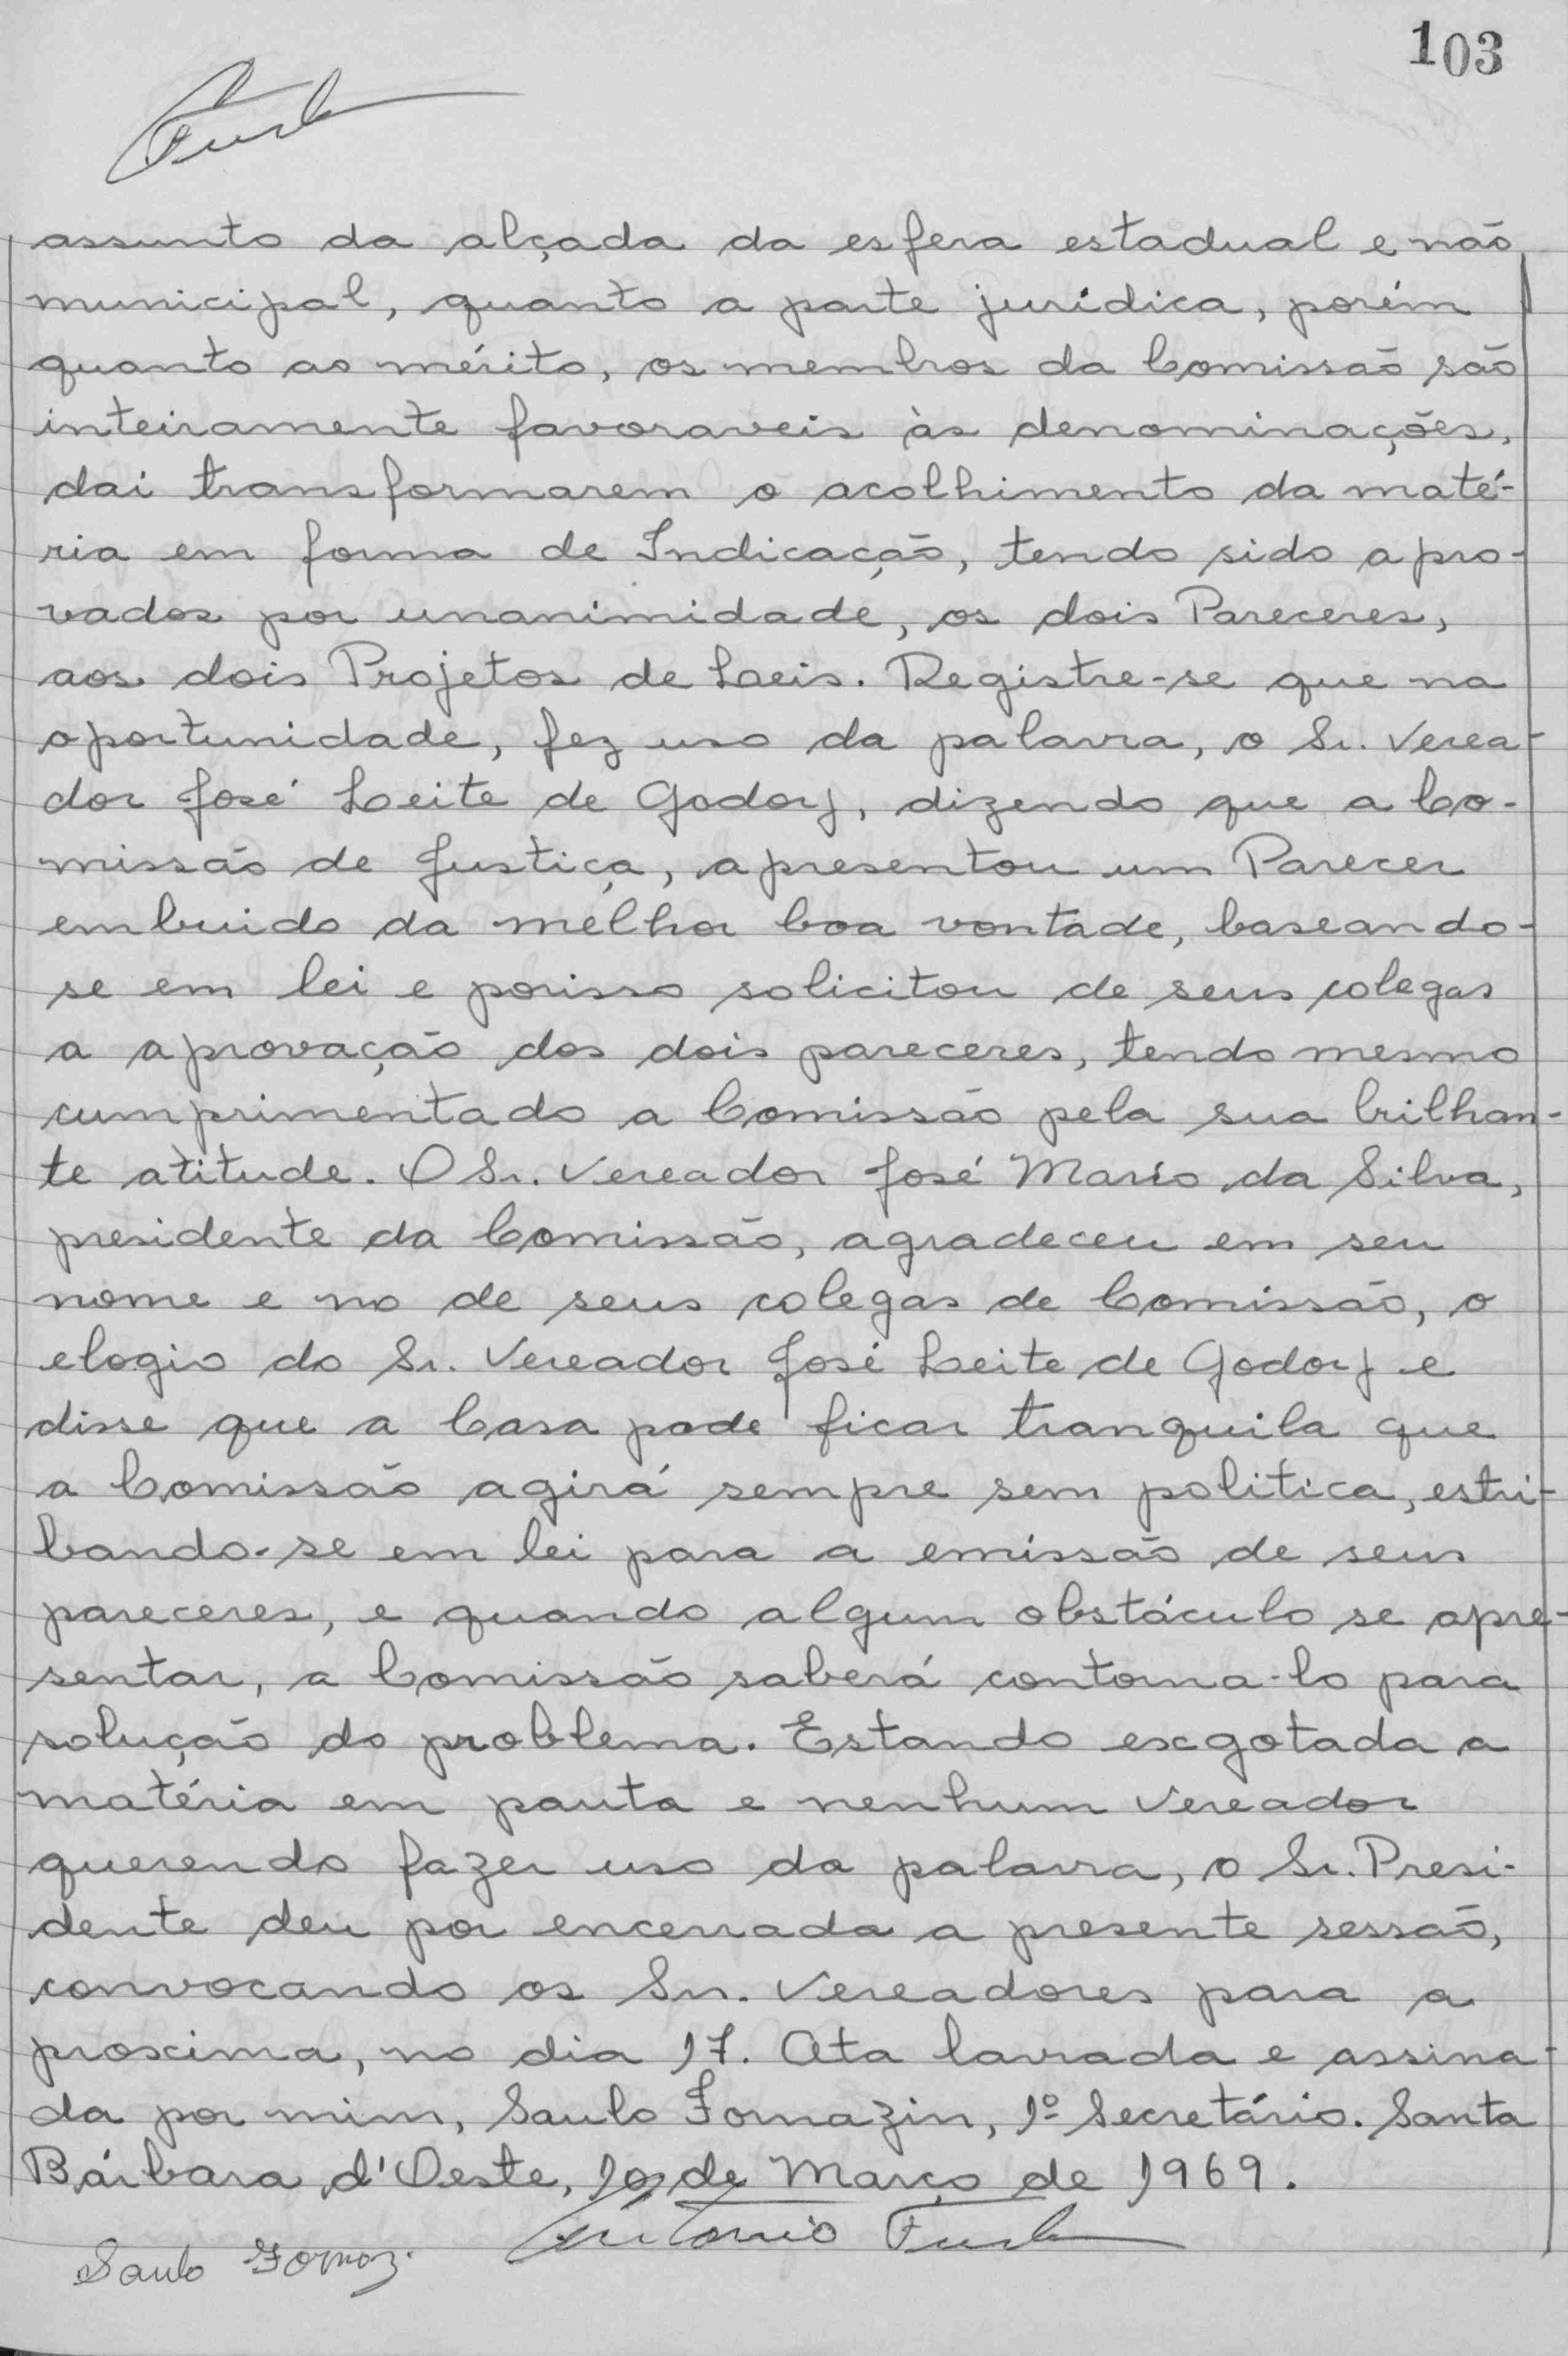 103
assunto da alçada da esfera estadual e não
municipal, quanto a parte jurídica, porém
quanto ao mérito, os membros da Comissão são
inteiramente favoraveis às denominações,
dai transformarem o acolhimento da maté-
ria em forma de Indicação, tendo sido apro-
vados por unanimidade, os dois Pareceres,
aos dois Projetos de Leis. Registre-se que na
oportunidade, fez uso da palavra, o Sr. Verea-
dor José Leite de Godoy, dizendo que a Co-
missão de Justiça, apresentou um Parecer
embuido da melhor boa vontade, baseando-
se em lei e porisso solicitou de seus colegas
a aprovação dos dois pareceres, tendo mesmo
cumprimentado a Comissão pela sua brilhan-
te atitude. O Sr. Vereador José Mario da Silva,
presidente da Comissão, agradeceu em seu
nome e no de seus colegas de Comissão, o
elogio do Sr. Vereador José Leite de Godoy e
disse que a Casa pode ficar tranquila que
a Comissão agirá sempre sem politica, estri-
bando-se em lei para a emissão de seus
pareceres, e quando algum obstáculo se apre-
sentar, a Comissão saberá contorna-lo para
solução do problema. Estando exgotada a
matéria em pauta e nenhum Vereador
querendo fazer uso da palavra, o Sr. Presi-
dente deu por encerrada a presente sessão,
convocando os Srs. Vereadores para a
proxima, no dia 17. Ata lavrada e assina-
da por mim, Saulo Fornazin, 1º Secretário. Santa
Bárbara d'Oeste, 10 de Março de 1969.
Antonio
Saulo Fornaz.